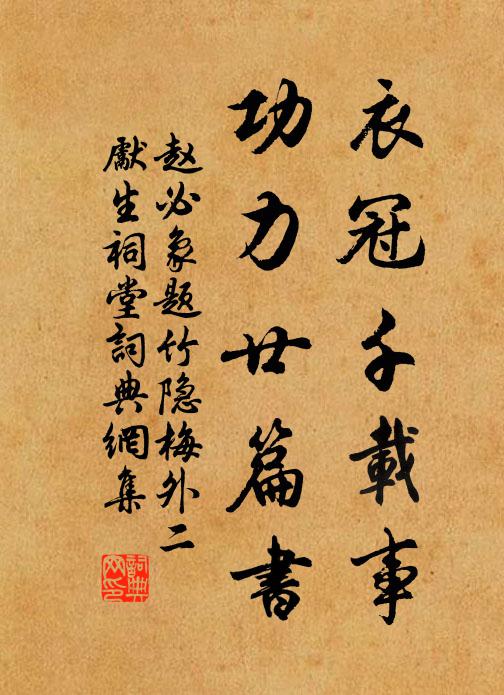 衣冠千載事
功力廿篇書
赵必象题竹隐梅外二
獻生祠堂詞典網集
詞典
网印